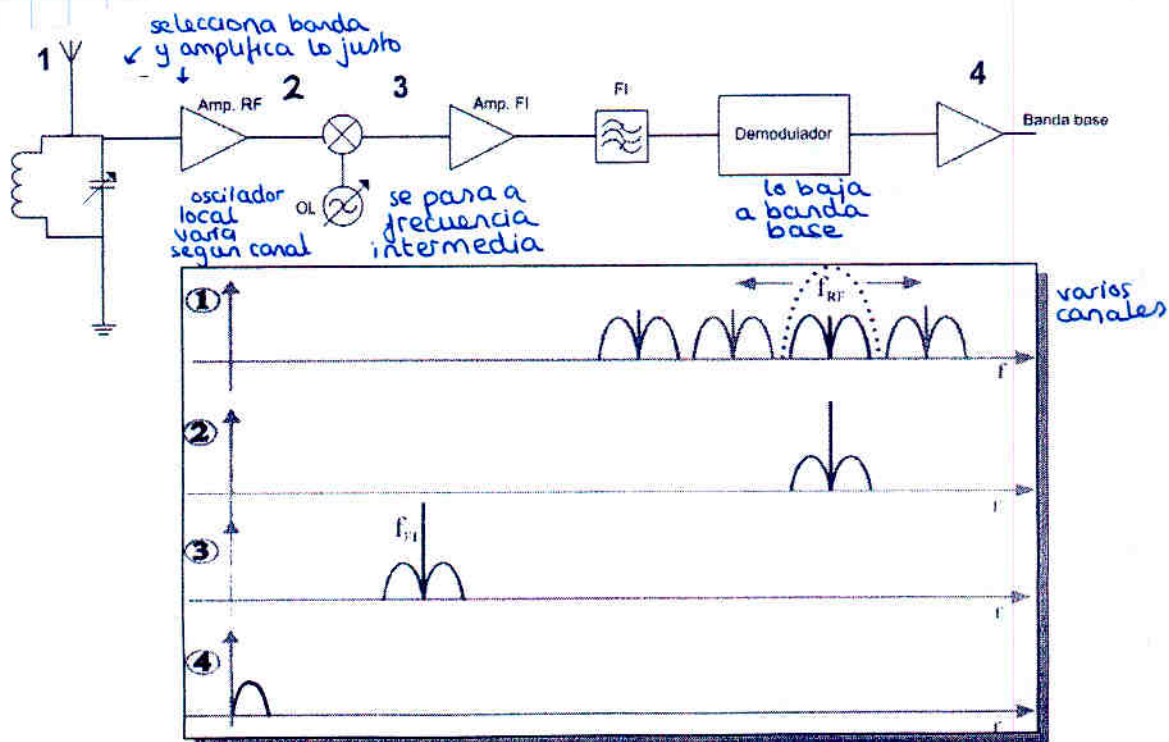 selecciona banda
y amplifica lo justo
1
Amp. RF
2
3
Amp. FI
FI
Demodulador
4
Banda base
oscilador
local
varia
segun canal
OL
se pasa a
frecuencia
intermedia
lo baja
a banda
base
1
f RF
f
varios
canales
2
f
3
f FI
f
4
f